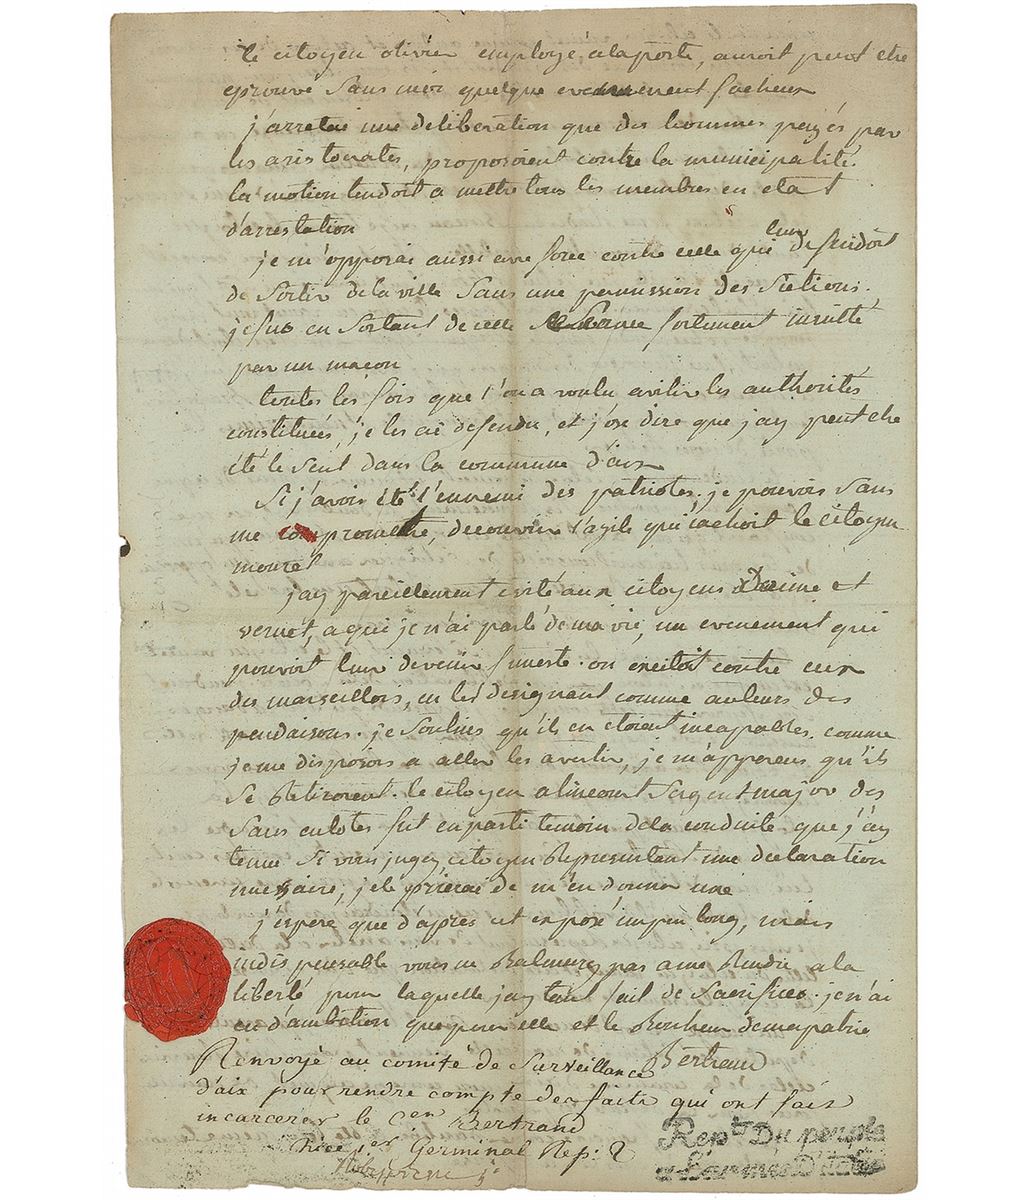 le citoyen olivier employé, a la poste, auroit peut etre
eprouvé sans moi quelque evenement facheux
j'arretai une deliberation que des hommes payés par
les aristocrates, proposoient contre la municipalité.
la motion tendoit a mettre tous les membres en etat
d'arrestation
je m'opposai aussi avec force contre celle qui leur defendoit
de sortir de la ville sans une permission des sections.
je fus en sortant de cette seance fortement insulté
par un maçon
toutes les fois que l'on a voulu avilir les authorités
constituées, je les ai defendu, et j'ose dire que j'ay peut etre
été le seul dans la commune d'aix
Si j'avois été l'ennemi des patriotes. je pouvois sans
me compromettre, decouvrir l'azile qui cachoit le citoyen
mouret
j'ay pareillement evité aux citoyens et
vernet, a qui je n'ai parlé de ma vie, un evenement qui
pouvoit leur devenir funeste. on excitoit contre eux
des marseillois, en les designant comme auteurs des
pendaisons. je soutins qu'ils en etoient incapables. comme
je me disposois a aller les avertir, je m'apperçeus qu'ils
se retiroient. le citoyen alincourt sergent major des
sans culotes fut en parti temoin de la conduite que j'ay
tenue si vous jugez citoyen Representant une declaration
necessaire, je le prierai de m'en donner une
j'espere que d'après cet exposé un peu long, mais
indispensable vous ne Balancerez pas a me Rendre a la
liberté pour laquelle j'ay tant fait de sacrifices. je n'ai
eu d'ambition que pour elle et le Bonheur de ma patrie
Bertrand
Renvoyé au comité de surveillance
d'aix pour rendre compte des faits qui ont fait
incarcerer le C.en Bertrand
Nice 1er Germinal Rep: 2
Robespierre j
Rept. Du peuple
a L'armée D'italie